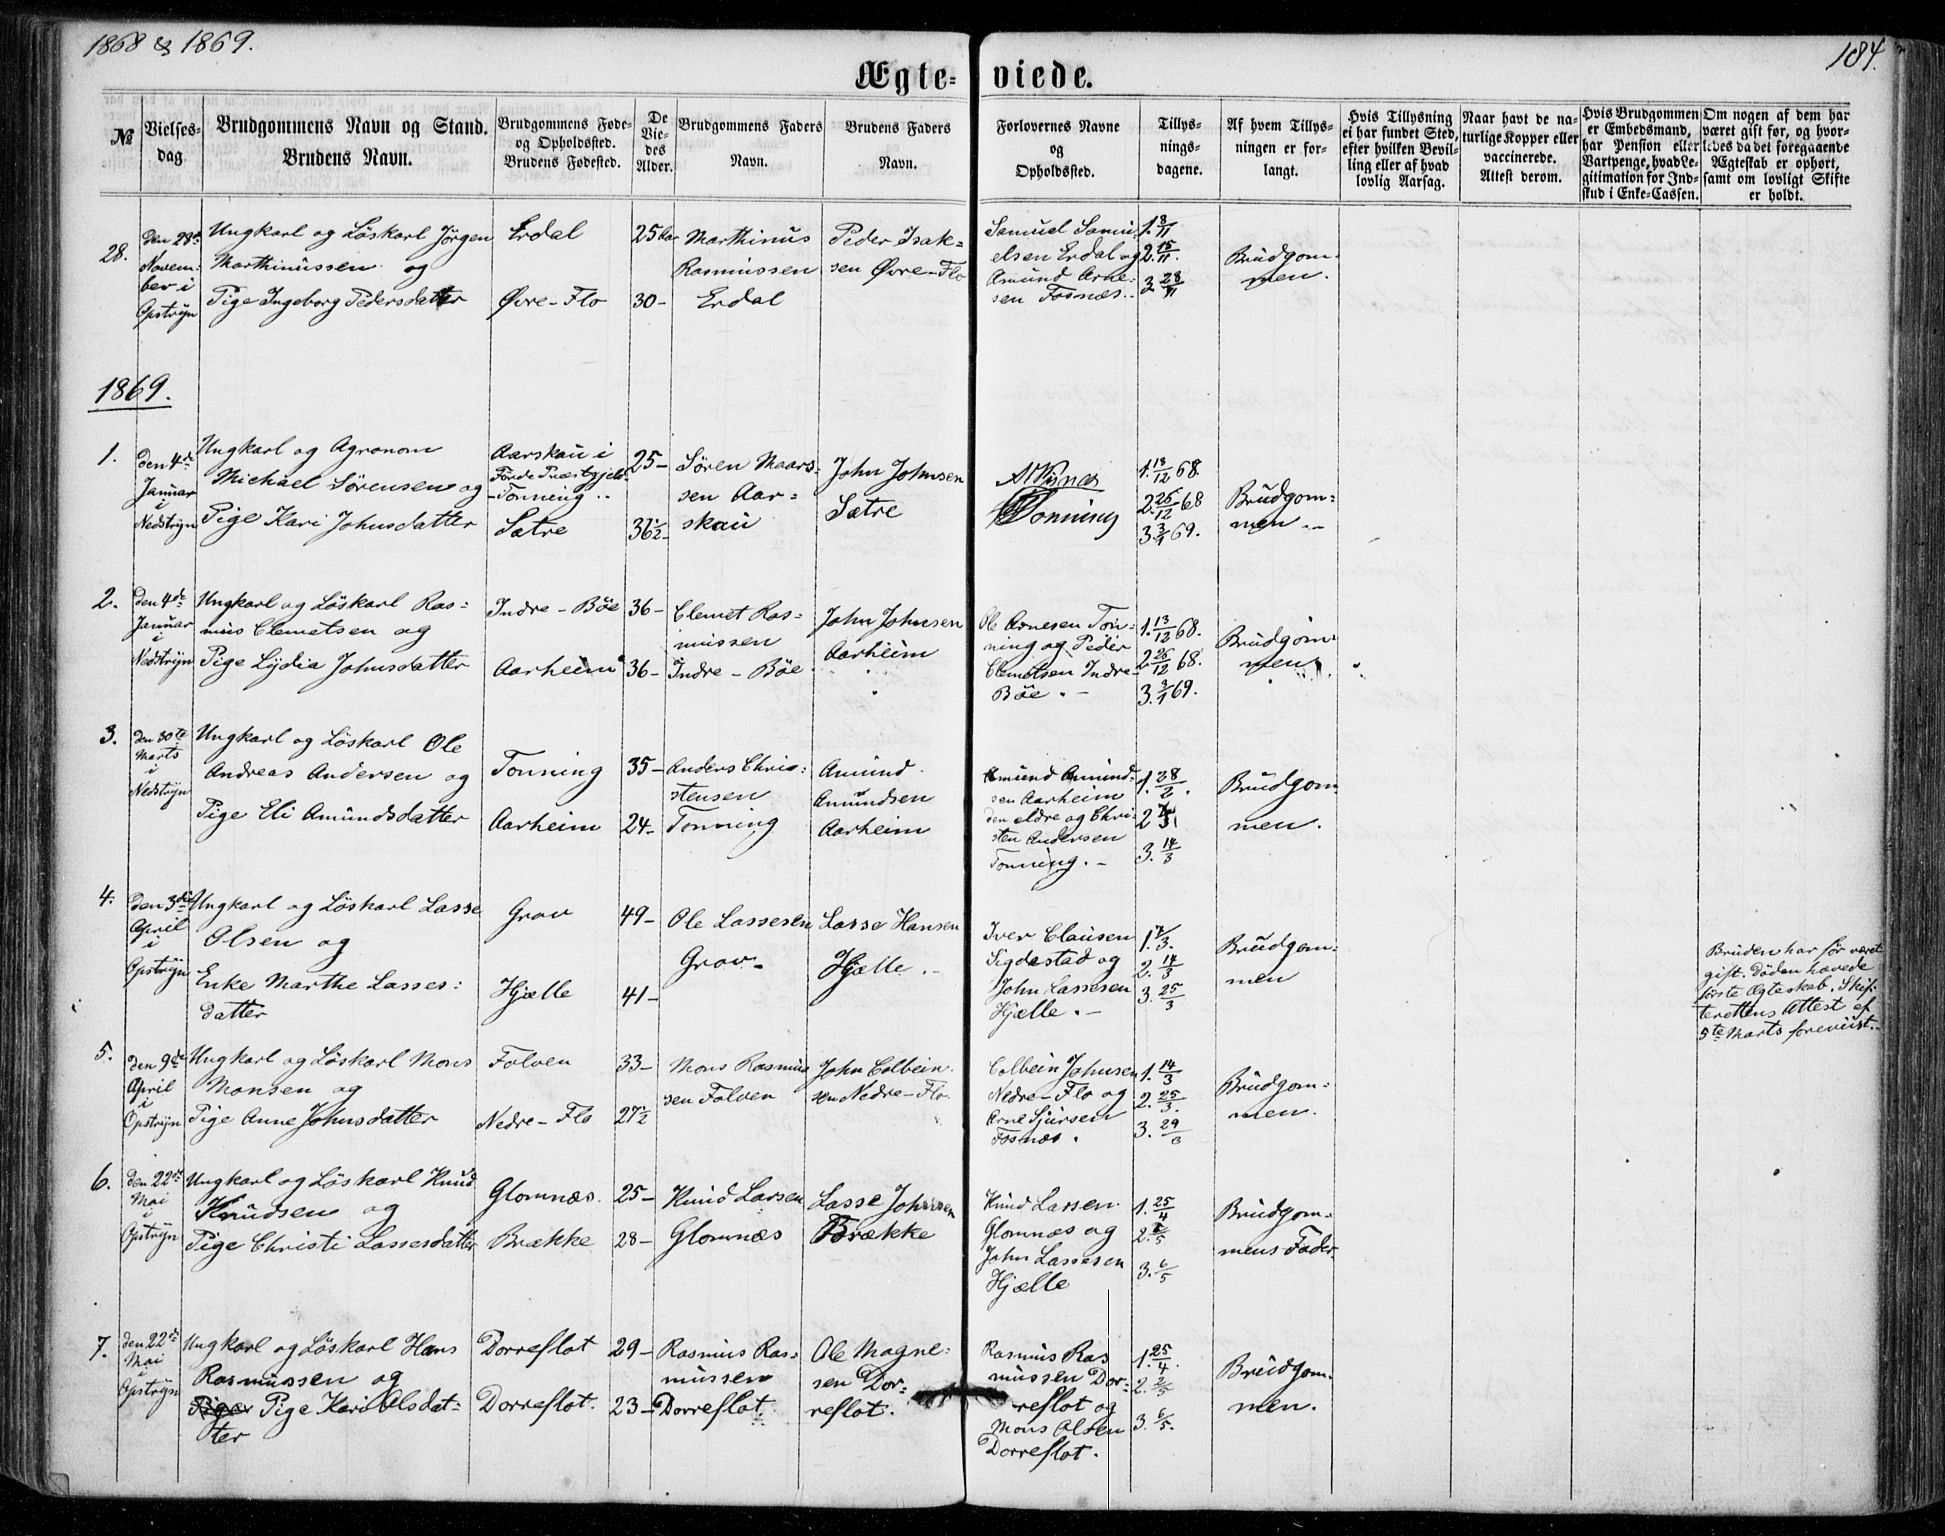 1868 & 1869.
184.
Ægte= viede.
№
Vielses=
dag.
Brudgommens Navn og Stand.
Brudens Navn.
Brudgommens Føde=
og Opholdssted.
Brudens Fødested.
De
Vie=
des
Alder.
Brudgommens Faders
Navn.
Brudens Faders
Navn.
Forlovernes Navne
og
Opholdssted.
Tillys=
nings=
dagene.
Af hvem Tillys=
ningen er for=
langt.
Hvis Tillysning
ei har fundet Sted,
efter hvilken Bevil=
ling eller af hvad
lovlig Aarsag.
Naar havt de na=
turlige Kopper eller
vaccinerede.
Attest derom.
Hvis Brudgommen
er Embedsmand,
har Pension eller
Vartpenge, hvad Le=
gitimation for Ind=
skud i Enke=Cassen.
Om nogen af dem har
været gift før, og hvor=
ledes da det foregaaende
Ægteskab er ophørt,
samt om lovligt Skifte
er holdt.
28.
den 28de
Novem=
ber i
Opstryn
Ungkarl og Löskarl Jørgen
Marthinussen og
Pige Ingeborg Pedersdatter
Erdal
Øvre-Flo
25 aar
30-
Marthinus
Rasmussen
Erdal
Peder Isak=
sen Øvre-Flo
Samuel Samu=
elsen Erdal og
Amund Arne=
sen Fosnæs.-
1. 8/11
2. 15/11.
3. 28/11
Brudgom=
men.
1869.
1.
den 4de
Januar
i
Nedstryn
Ungkarl og Agronom
Michael Sörensen og
Pige Kari Johnsdatter
Aarskau i
Förde Præstegjeld
-Tonning..
Sætre
25-
36½-
Sören Maars=
sen Aar=
skau
John Johnsen
Sætre
Tonning
1. 13/12 68.
2. 26/12 68
3. 3/1 69.
Brudgom=
men.-
2.
den 4de
Januar
i
Nedstryn
Ungkarl og Löskarl Ras=
mus Clemetsen og
Pige Lydia Johnsdatter
Indre-Böe
Aarheim
36-
36-
Clemet Ras=
mussen
Indre-Böe
John Johnsen
Aarheim
Ole Arnesen Ton=
ning og Peder
Clemetsen Indre-
Böe.-
1. 13/12 68.
2. 26/12 68.
3. 3/1 69.
Brudgom=
men.
3.
den 30te
Marts
i
Nedstryn
Ungkarl og Löskarl Ole
Andreas Andersen og
Pige Eli Amundsdatter
Tonning
Aarheim
35-
24-
Anders Chris=
stensen
Tonning
Amund
Amundsen
Aarheim
Amund Amund=
sen Aarheim
den eldre og Chri=
sten Andersen
Tonning.-
1. 28/2.
2 7/3
3. 14/3
Brudgom=
men.
4.
den 3die
April
i
Opstryn
Ungkarl og Löskarl Lasse
Olsen og
Enke Marthe Lasses=
datter
Grov
Hjælle
49-
41-
Ole Lassesen
Grov-
Lasse Hansen
Hjælle.-
Iver Clausen
Sigdestad og
John Lassesen
Hjælle.-
1. 7/3.
2. 14/3
3. 25/3
Brudgom=
men
Bruden har før været
gift. Döden hævede
første Ægteskab. Skif=
terettens Attest af
5te Marts foreviist.
5.
den 9de
April
i
Opstryn
Ungkarl og Löskarl Mons
Monsen og
Pige Anne Johnsdatter
Folven
Nedre-Flo
33-
27½
Mons Rasmus
sen Folven
John Colbein=
sen Nedre-Flo.
Colbein Johnsen
Nedre-Flo og
Arne Sjursen
Fosnæs.
1. 14/3
2. 25/3.
3. 29/3
Brudgom=
men.
6.
den 22de
Mai
i
Opstryn
Ungkarl og Löskarl Knud
Knudsen og
Pige Christi Lassesdatter
Glomnæs.
Brække
25-
28-
Knud Larsen
Glomnæs
Lasse Johnsen
Brække
Knud Larsen
Glomnæs og
John Lassesen
Hjælle
1. 25/4
2. 2/5
3. 6/5
Brudgom=
mens Fader.
7.
den 22de
Mai
i
Opstryn
Ungkarl og Löskarl Hans
Rasmussen og
Pige Pige Kari Olsdat=
ter
Dorreflot
Dorreflot.
29-
23-
Rasmus Ras=
mussen
Dorreflot
Ole Magne=
sen Dor=
reflot.
Rasmus Ras
mussen Dor=
reflot og
Mons Olsen
Dorreflot.
1. 25/4.
2. 2/5
3. 6/5.
Brudgom=
men.